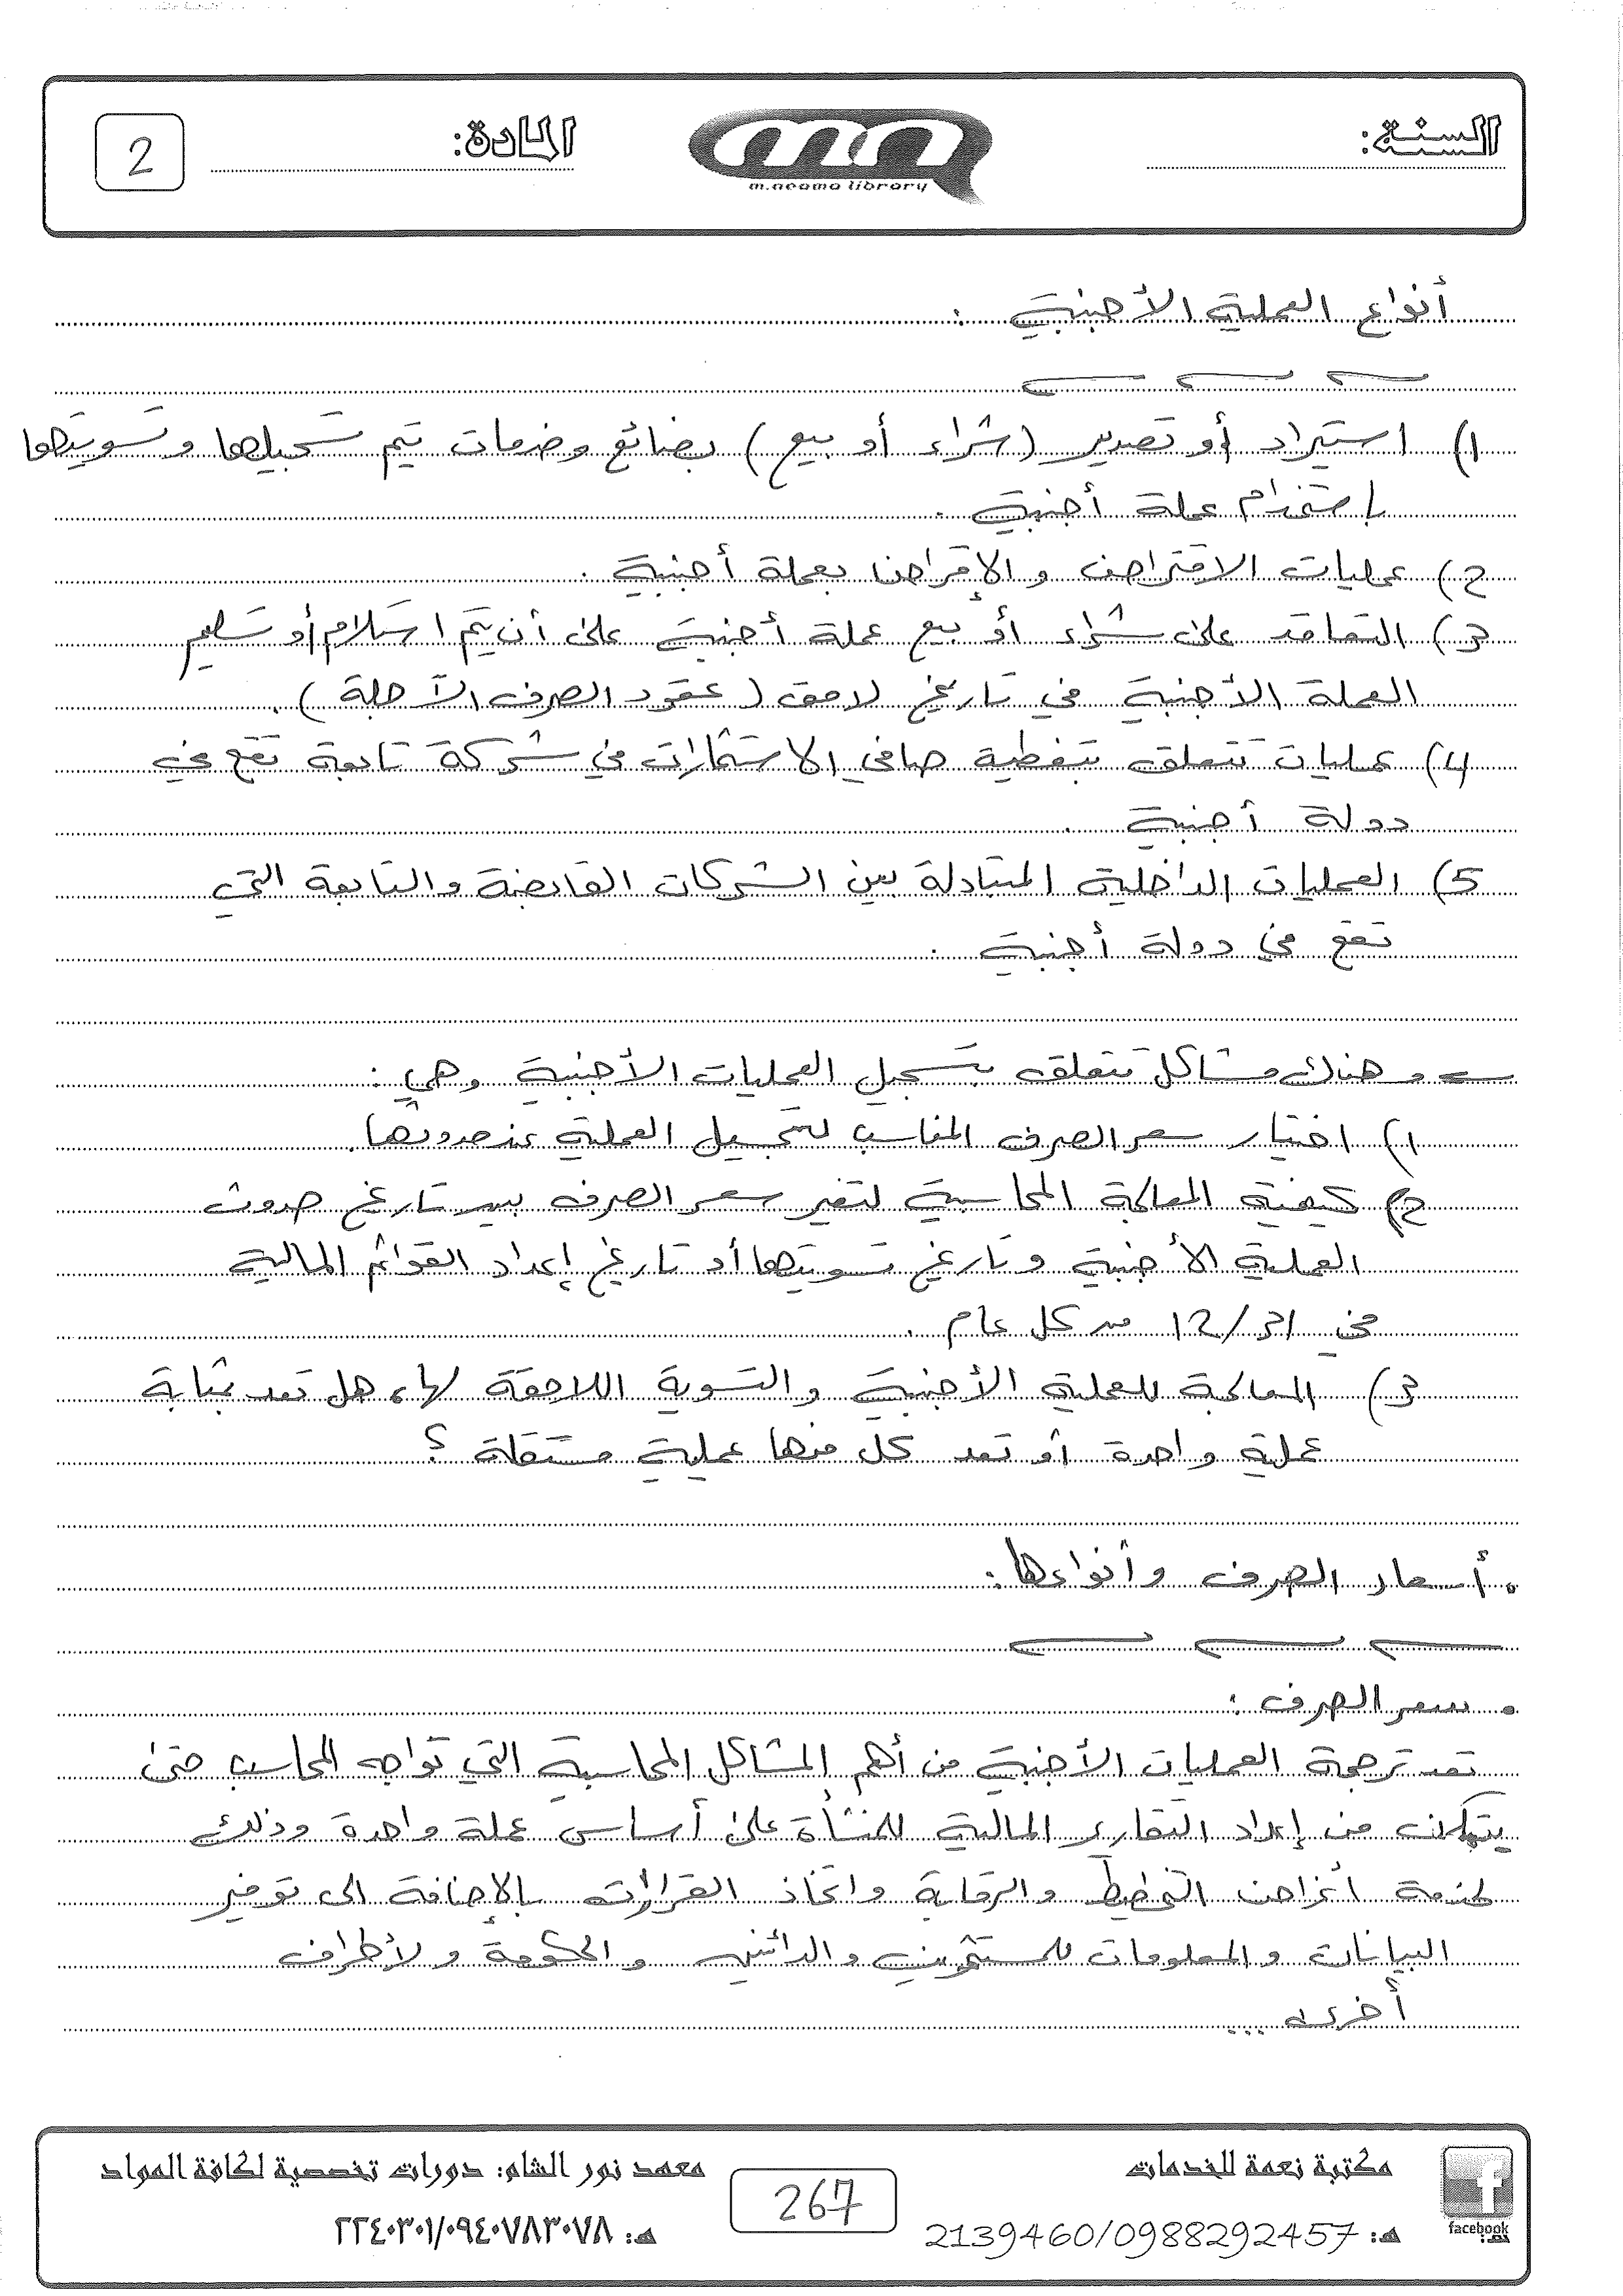 السنة:
m.neama library
المادة:
2
أنواع العملية الأجنبية :
1) استيراد أو تصدير (شراء أو بيع) بضائع وخدمات يتم تسجيلها وتسويتها
باستخدام عملة أجنبية .
2) عمليات الاقتراض والإقراض بعملة أجنبية .
3) التعاقد على شراء أو بيع عملة أجنبية على أن يتم استلام أو تسليم
العملة الأجنبية في تاريخ لاحق (عقود الصرف الآجلة) .
4) عمليات تتعلق بتغطية صافي الاستثمارات في شركة تابعة تقع في
دولة أجنبية .
5) العمليات الداخلية المتبادلة بين الشركات القابضة والتابعة التي
تقع في دولة أجنبية .
وهناك مشاكل تتعلق بتسجيل العمليات الأجنبية وهي :
1) اختيار سعر الصرف المناسب لتسجيل العملية عند حدوثها.
2) كيفية المعالجة المحاسبية لتغير سعر الصرف بين تاريخ حدوث
العملية الأجنبية وتاريخ تسويتها أو تاريخ إعداد القوائم المالية
في 31/12 من كل عام .
3) المعالجة للعملية الأجنبية والتسوية اللاحقة لها، هل تعد بمثابة
عملية واحدة أو تعد كل منها عملية مستقلة ؟
• أسعار الصرف وأنواعها:
• سعر الصرف :
تعد ترجمة العمليات الأجنبية من أهم المشاكل المحاسبية التي تواجه المحاسب حتى
يتمكن من إعداد التقارير المالية للمنشأة على أساس عملة واحدة وذلك
لخدمة أغراض التخطيط والرقابة واتخاذ القرارات بالإضافة الى توفير
البيانات والمعلومات للمستثمرين والدائنين والحكومة ولأطراف
أخرى ...
facebook
مكتبة نعمة للخدمات
هـ: 2139460/0988292457
267
معهد نور الشام: دورات تخصصية لكافة المواد
هـ: ٢٢٤٠٣٠١/٠٩٤٠٧٨٣٠٧٨